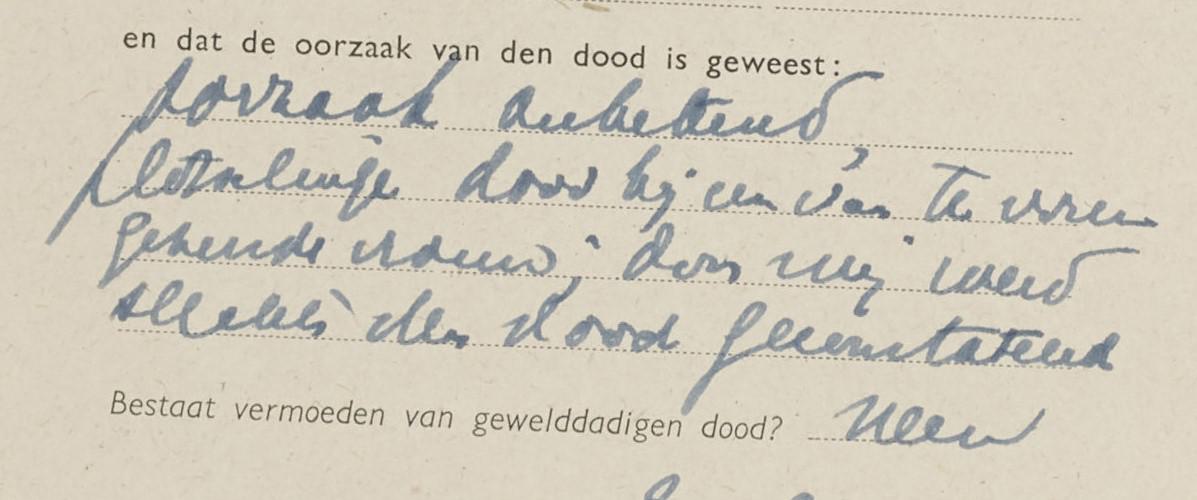 en dat de oorzaak van den dood is geweest:
oorzaak onbekend,
plotselinge dood bij een van te voren
gezonde vrouw; door mij werd
slechts den dood geconstateerd
Bestaat vermoeden van gewelddadigen dood? Neen